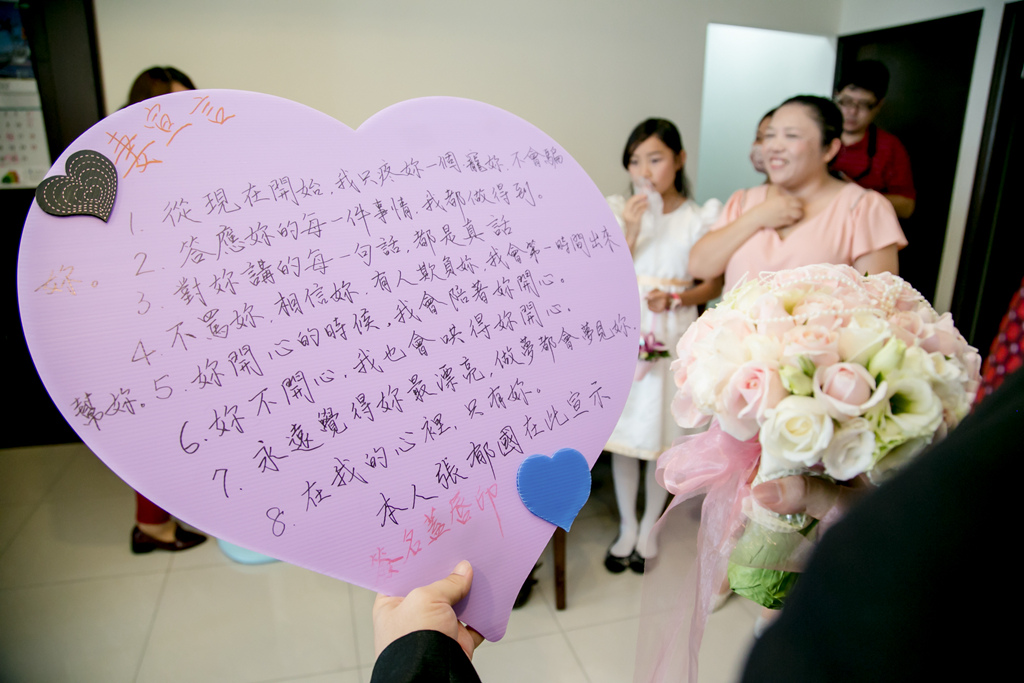 妻宣言
1. 從現在開始，我只疼妳一個，寵妳，不會騙
妳。
2. 答應妳的每一件事情，我都做得到。
3. 對妳講的每一句話，都是真話
4. 不罵妳，相信妳，有人欺負妳，我會第一時間出來
幫妳。
5. 妳開心的時候，我會陪著妳開心。
6. 妳不開心，我也會哄得妳開心。
7. 永遠覺得妳最漂亮，做夢都會夢見妳.
8. 在我的心裡，只有妳。
本人張郁國在此宣示
簽名蓋唇印